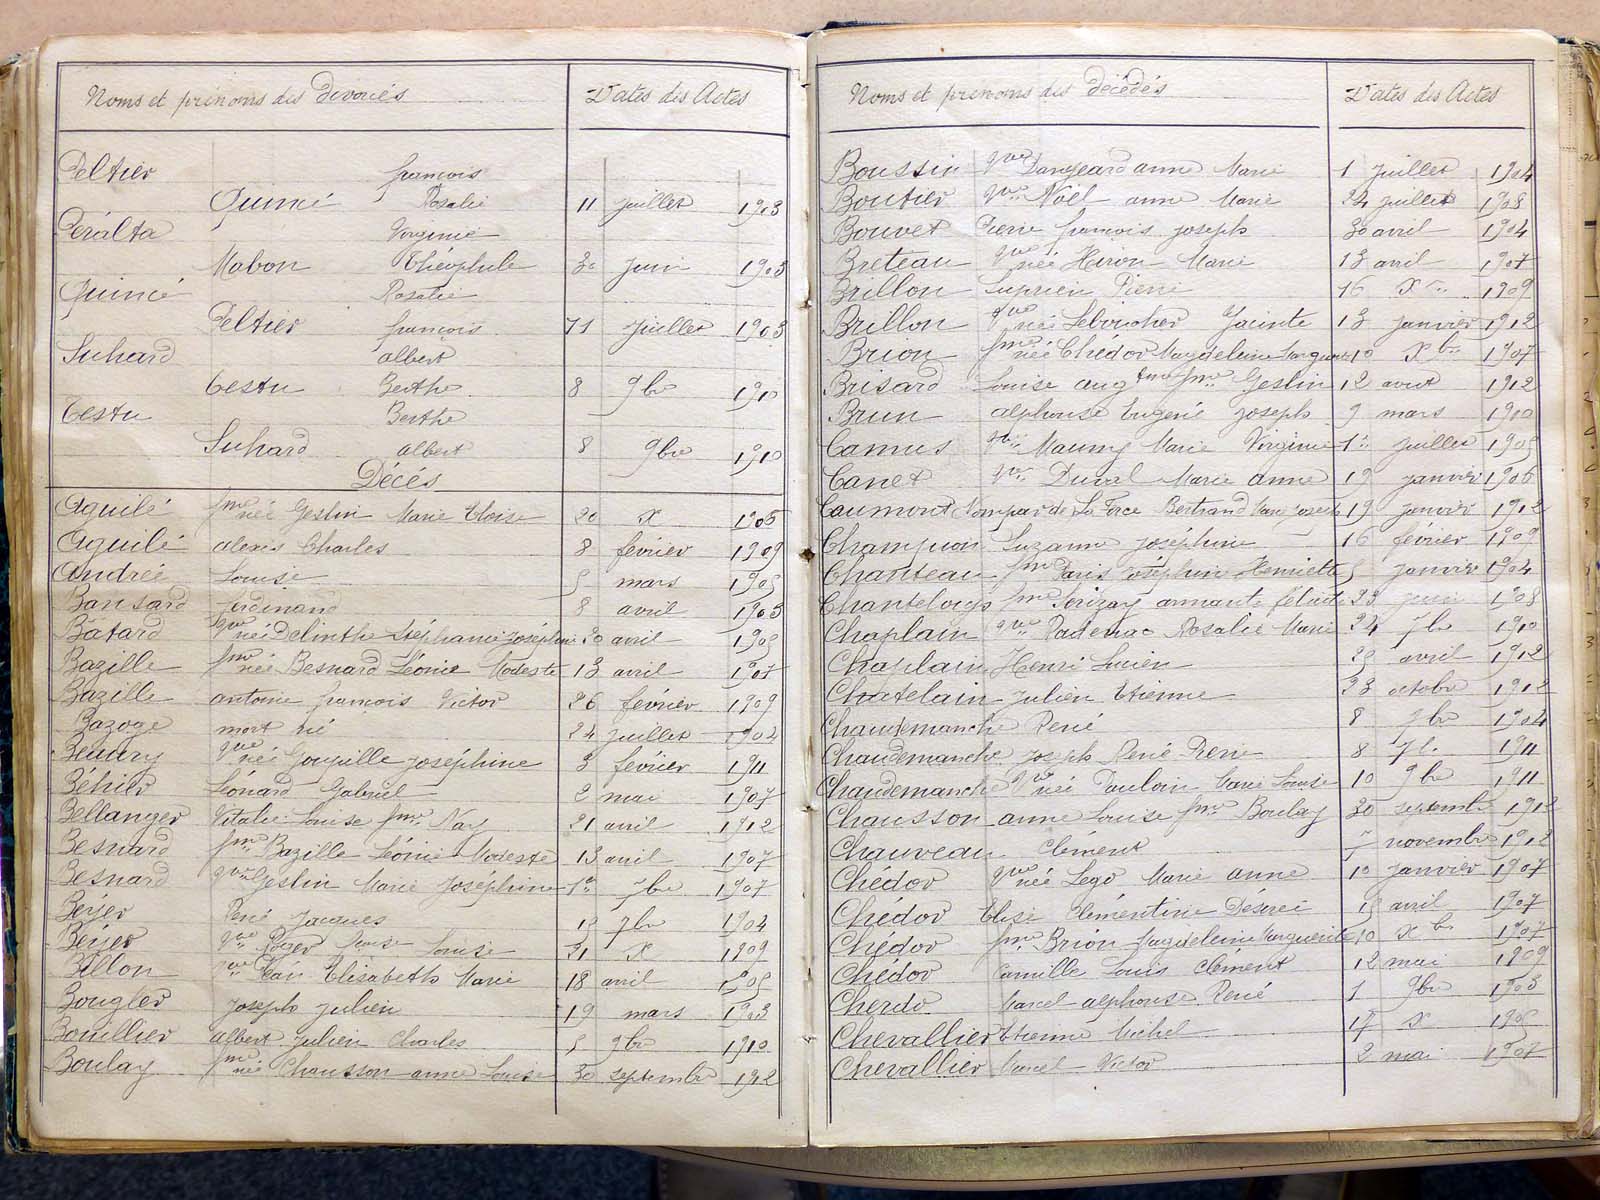 Noms et prénoms des divorcés Dates des Actes
Peltier françois
Quincé Rosalie 11 juillet 1903
Peralta Virginie
Mabon Théophile 30 juin 1903
Quincé Rosalie
Peltier françois 11 juillet 1903
Suhard albert
Testu Berthe 8 9bre 1910
Testu Berthe
Suhard albert 8 9bre 1910
Décès
Aguilé fme née Geslin Marie Eloise 20 X
Aguilé alexis Charles 8 février 1909
Andrée Louise 5 mars 1905
Bansard ferdinand 8 avril
Batard qve née Delinthe Stéphanie Joséphine 20 avril 1905
Bazille fme née Besnard Léonie Modeste 13 avril 1907
Bazille antoine françois Victor 26 février 1909
Bazoge mort né 24 juillet
Beaury qve née Goupille joséphine 3 février 1911
Béhier Léonard Gabriel 2 mai 1907
Bellanger Vitalie Louise fme Nay 21 avril 1912
Besnard fme Bazille Léonie Modeste 13 avril 1907
Besnard qve Geslin Marie Joséphine 1er 7bre 1907
Beyer René Jacques 7bre 1904
Beyer qve Roger Louise 31 X 1909
Billon qve Jean Elisabeth Marie 18 avril 1905
Bougler Joseph Julien 19 mars 1903
Bouillier albert Julien Charles 5 9bre 1910
Boulay fme née Chausson anne Louise 30 septembre 1912
Noms et prénoms des décédés Dates des Actes
Boussin qve Dangeard anne Marie 1 juillet 1904
Boutier qve Noël anne Marie 24 juillet 1908
Bouvet Pierre françois joseph 30 avril 1904
Breteau qve née Heiron Marie 13 avril 1907
Brillon Pierre 16 Xbre 1909
Brillon qve née Leboucher Jacinte 13 janvier 1912
Brion fme née Chédor Magdeleine Marguerite 10 Xbre 1907
Brisard Louise fme Geslin 12 août 1912
Brun alphonse Eugène joseph 9 mars 1910
Camus Mauny Marie Virginie 1er juillet 1905
Canet qve Duval Marie anne 19 janvier 1906
Caumont Nompar de La Force Bertrand Marie Joseph 19 janvier 1912
Champion Suzanne joséphine 16 février 1909
Chanteau fme Paris Joséphine Henriette 5 janvier 1904
Chanteloup fme juin 1908
Chaplain qve Rosalie Marie 24 7bre 1910
Chaplain Henri Lucien 25 avril 1912
Chatelain Julien Etienne 23 octobre 1912
Chaudemanche René 8 9bre 1904
Chaudemanche Joseph René Pierre 8 7bre 1911
Chaudemanche qve née Poulain Marie Louise 10 9bre 1911
Chausson anne Louise fme Boulay 30 septembre 1912
Chauveau Clément 7 novembre 1912
Chédor qve née Lego Marie anne 10 janvier 1907
Chédor Elise Clémentine Désirée 15 avril 1907
Chédor fme Brion Magdeleine Marguerite 10 Xbre 1907
Chédor Camille Louis Clément 12 mai 1909
Cherdo Marcel alphonse René 1 9bre 1903
Chevallier Etienne Michel 17 X 1905
Chevallier Marcel Victor 2 mai 1907